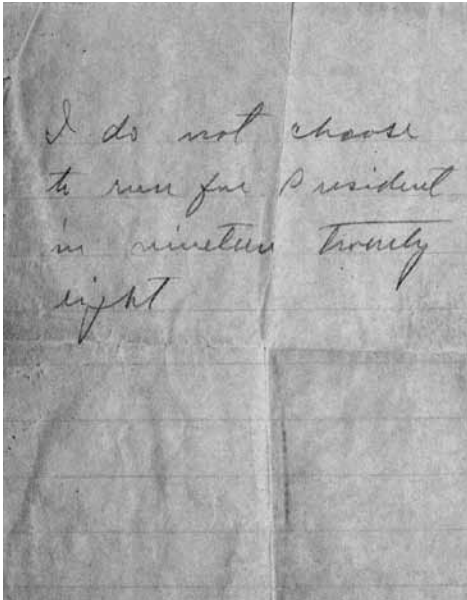 I do not choose
to run for President
in nineteen twenty
eight